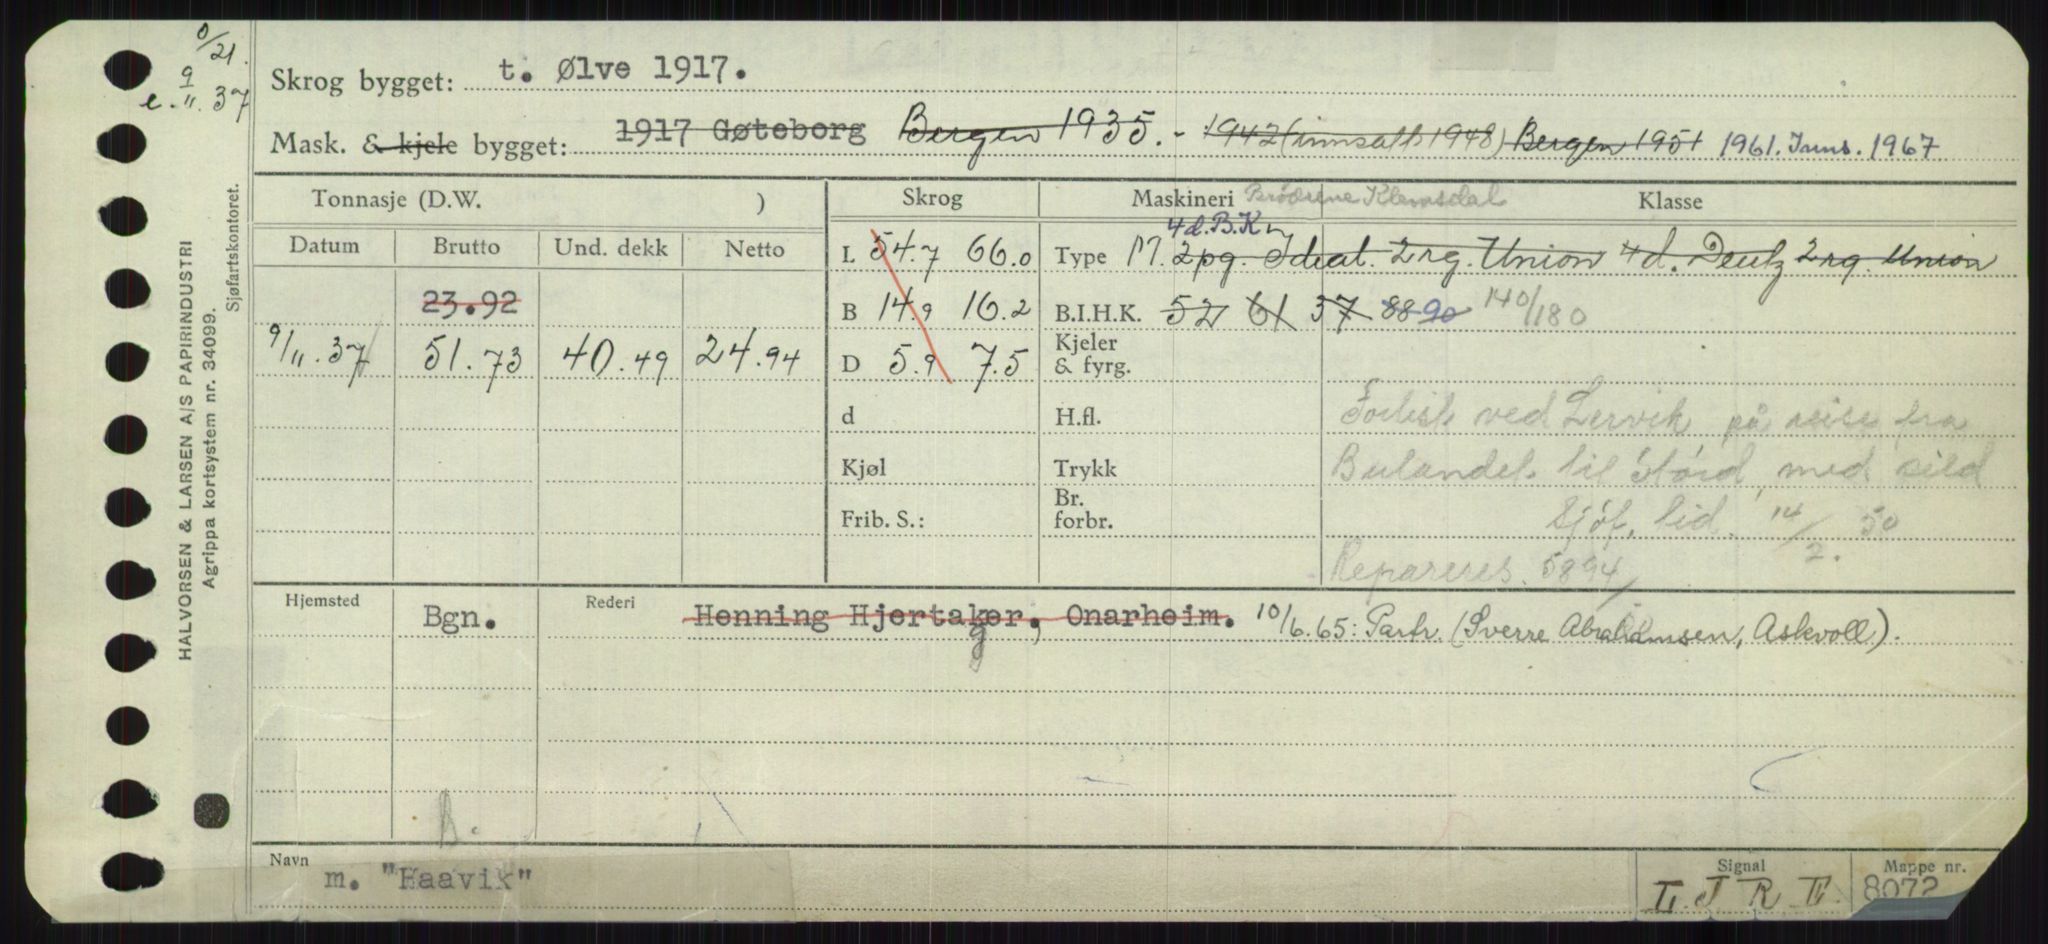 0/21.
e. 9/11. 37
HALVORSEN & LARSEN A/S PAPIRINDUSTRI
Agrippa kortsystem nr. 34099.
Sjøfartskontoret.
Skrog bygget: t. Ølve 1917.
Mask. & kjele bygget: 1917 Gøteborg Bergen 1935. - 1942 (innsatt 1948) Bergen 1951 1961. Inns. 1967
Tonnasje (D.W. ) Skrog Maskineri Brødrene Klemsdal Klasse
Datum Brutto Und. dekk Netto
4 d. B.K
L 54.7 66.0 Type M. 2pg. Ideal. 2 rg. Union 4d. Deutz 2 rg. Union
23.92
B 14.9 16.2 B.I.H.K. 52 61 37 88 90 140/180
9/11. 37 51.73 40.49 24.94
D 5.9 7.5 Kjeler & fyrg.
d H.fl. Forlist ved Lervik på reise fra
Kjøl Trykk Bulandet til Stord med sild
Frib. S.: Br. forbr. Sjøf. tid. 14/2. 50
Repareres. 5894/
Hjemsted Bgn. Rederi Henning Hjertaker, Onarheim. 10/6.65: Partr. (Sverre Abrahamsen, Askvoll).
g
B.
Navn m. "Haavik"
Signal L J R E.
Mappe nr. 8072